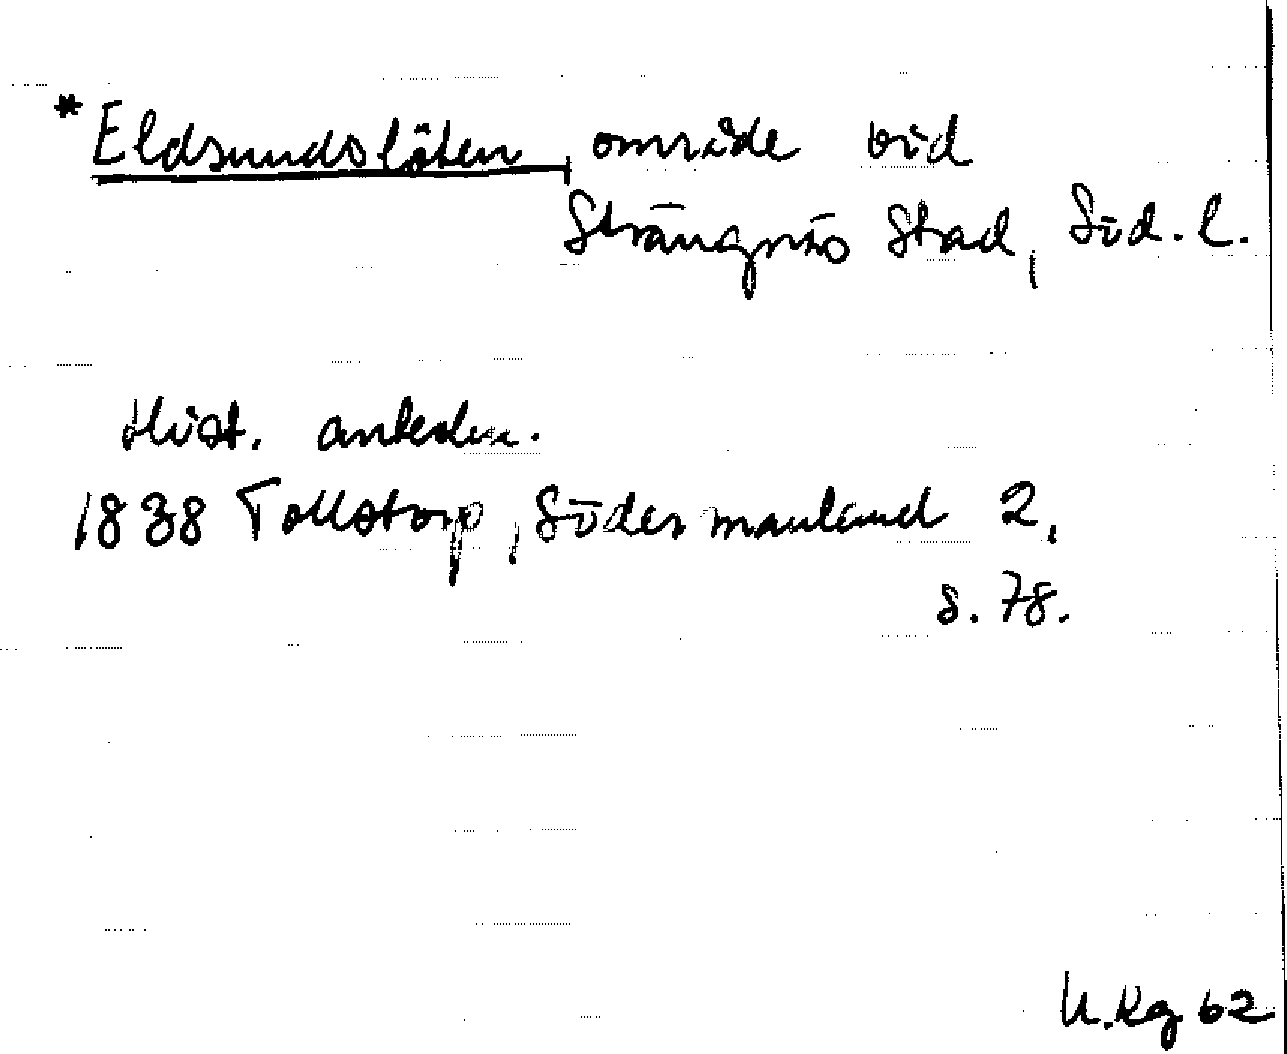 * Eldsundslöten, område vid
Strängnäs stad, Söd. l.
Hist. anteckn.
1838 Tollstorp, Södermanland 2,
s. 78.